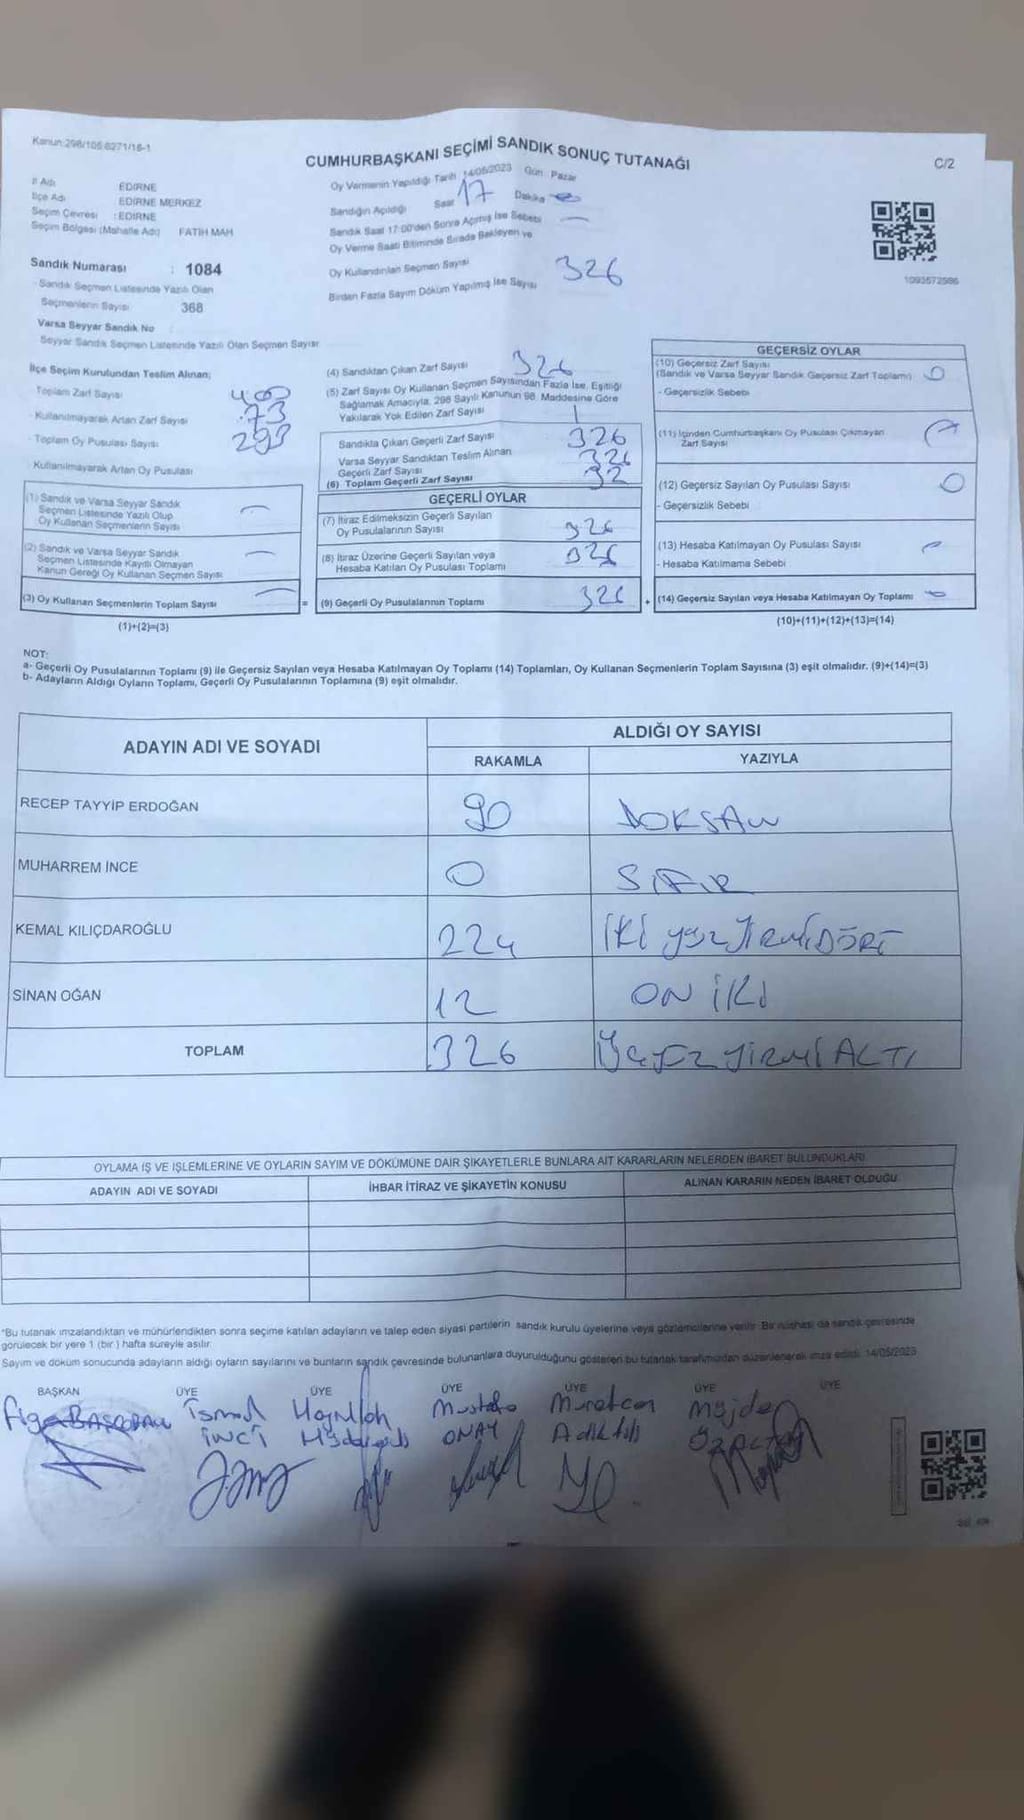 Kanun:298/105 6271/16-1
CUMHURBAŞKANI SEÇİMİ SANDIK SONUÇ TUTANAĞI
C/2
İl Adı EDİRNE
İlçe Adı EDİRNE MERKEZ
Seçim Çevresi : EDİRNE
Seçim Bölgesi (Mahalle Adı) FATİH MAH
Oy Vermenin Yapıldığı Tarih 14/05/2023 Gün Pazar
Sandığın Açıldığı Saat 17 Dakika
Sandık Saat 17:00'den Sonra Açılmış İse Sebebi
Oy Verme Saati Bitiminde Sırada Bekleyen ve
Oy Kullandırılan Seçmen Sayısı 326
Birden Fazla Sayım Döküm Yapılmış İse Sayısı
1093572986
Sandık Numarası : 1084
Sandık Seçmen Listesinde Yazılı Olan
Seçmenlerin Sayısı 368
Varsa Seyyar Sandık No
Seyyar Sandık Seçmen Listesinde Yazılı Olan Seçmen Sayısı
İlçe Seçim Kurulundan Teslim Alınan;
Toplam Zarf Sayısı 400
Kullanılmayarak Artan Zarf Sayısı 73
Toplam Oy Pusulası Sayısı
Kullanılmayarak Artan Oy Pusulası
(1) Sandık ve Varsa Seyyar Sandık
Seçmen Listesinde Yazılı Olup
Oy Kullanan Seçmenlerin Sayısı
(2) Sandık ve Varsa Seyyar Sandık
Seçmen Listesinde Kayıtlı Olmayan
Kanun Gereği Oy Kullanan Seçmen Sayısı
(3) Oy Kullanan Seçmenlerin Toplam Sayısı
(1)+(2)=(3)
(4) Sandıktan Çıkan Zarf Sayısı 326
(5) Zarf Sayısı Oy Kullanan Seçmen Sayısından Fazla İse, Eşitliği
Sağlamak Amacıyla, 298 Sayılı Kanunun 98. Maddesine Göre
Yakılarak Yok Edilen Zarf Sayısı
Sandıkta Çıkan Geçerli Zarf Sayısı 326
Varsa Seyyar Sandıktan Teslim Alınan
Geçerli Zarf Sayısı 326
(6) Toplam Geçerli Zarf Sayısı 32
GEÇERLİ OYLAR
(7) İtiraz Edilmeksizin Geçerli Sayılan
Oy Pusulalarının Sayısı 326
(8) İtiraz Üzerine Geçerli Sayılan veya
Hesaba Katılan Oy Pusulası Toplamı 326
= (9) Geçerli Oy Pusulalarının Toplamı 326 +
GEÇERSİZ OYLAR
(10) Geçersiz Zarf Sayısı
(Sandık ve Varsa Seyyar Sandık Geçersiz Zarf Toplamı) 0
- Geçersizlik Sebebi
(11) İçinden Cumhurbaşkanı Oy Pusulası Çıkmayan
Zarf Sayısı
(12) Geçersiz Sayılan Oy Pusulası Sayısı 0
- Geçersizlik Sebebi
(13) Hesaba Katılmayan Oy Pusulası Sayısı
- Hesaba Katılmama Sebebi
(14) Geçersiz Sayılan veya Hesaba Katılmayan Oy Toplamı
(10)+(11)+(12)+(13)=(14)
NOT:
a- Geçerli Oy Pusulalarının Toplamı (9) ile Geçersiz Sayılan veya Hesaba Katılmayan Oy Toplamı (14) Toplamları, Oy Kullanan Seçmenlerin Toplam Sayısına (3) eşit olmalıdır. (9)+(14)=(3)
b- Adayların Aldığı Oyların Toplamı, Geçerli Oy Pusulalarının Toplamına (9) eşit olmalıdır.
ADAYIN ADI VE SOYADI ALDIĞI OY SAYISI
RAKAMLA YAZIYLA
RECEP TAYYİP ERDOĞAN 90 DOKSAN
MUHARREM İNCE 0 SIFIR
KEMAL KILIÇDAROĞLU 224 İKİ YÜZ YİRMİDÖRT
SİNAN OĞAN 12 ON İKİ
TOPLAM 326 ÜÇYÜZ YİRMİ ALTI
OYLAMA İŞ VE İŞLEMLERİNE VE OYLARIN SAYIM VE DÖKÜMÜNE DAİR ŞİKAYETLERLE BUNLARA AİT KARARLARIN NELERDEN İBARET BULUNDUKLARI
ADAYIN ADI VE SOYADI İHBAR İTİRAZ VE ŞİKAYETİN KONUSU ALINAN KARARIN NEDEN İBARET OLDUĞU
*Bu tutanak imzalandıktan ve mühürlendikten sonra seçime katılan adayların ve talep eden siyasi partilerin sandık kurulu üyelerine veya gözlemcilerine verilir. Bir nüshası da sandık çevresinde
görülecek bir yere 1 (bir) hafta süreyle asılır.
Sayım ve döküm sonucunda adayların aldığı oyların sayılarını ve bunların sandık çevresinde bulunanlara duyurulduğunu gösteren bu tutanak tarafımızdan düzenlenerek imza edildi. 14/05/2023
BAŞKAN ÜYE ÜYE ÜYE ÜYE ÜYE ÜYE
İsmail Mustafa Müratcan Müjde
İNCİ ONAY